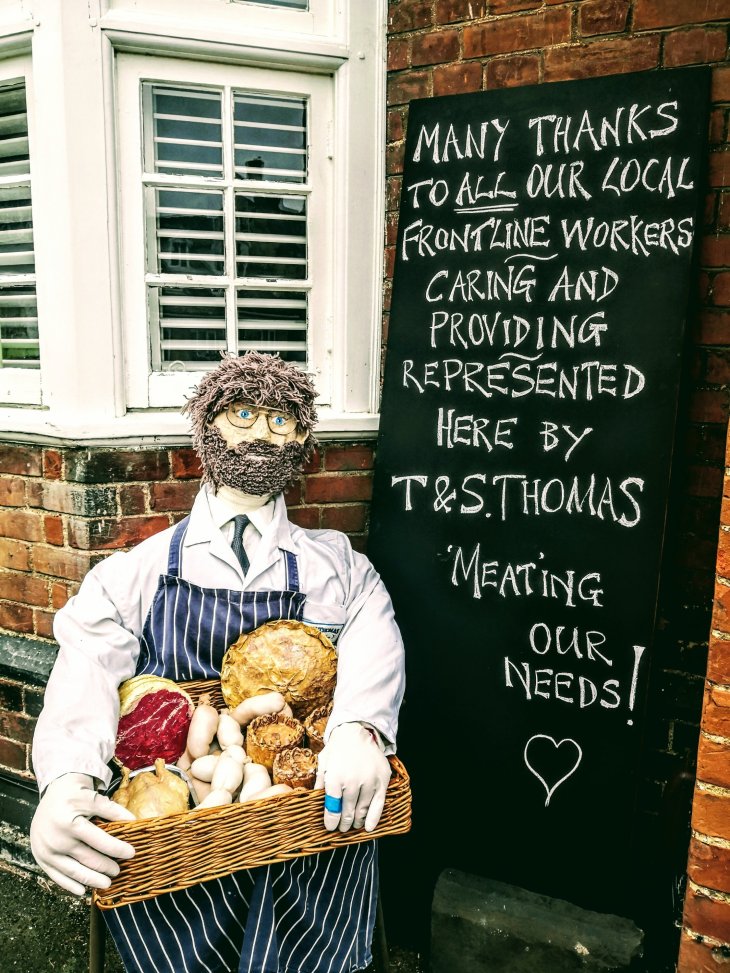 MANY THANKS
TO ALL OUR LOCAL
FRONTLINE WORKERS
CARING AND
PROVIDING
REPRESENTED
HERE BY
T & S. THOMAS
'MEAT'ING
OUR
NEEDS!